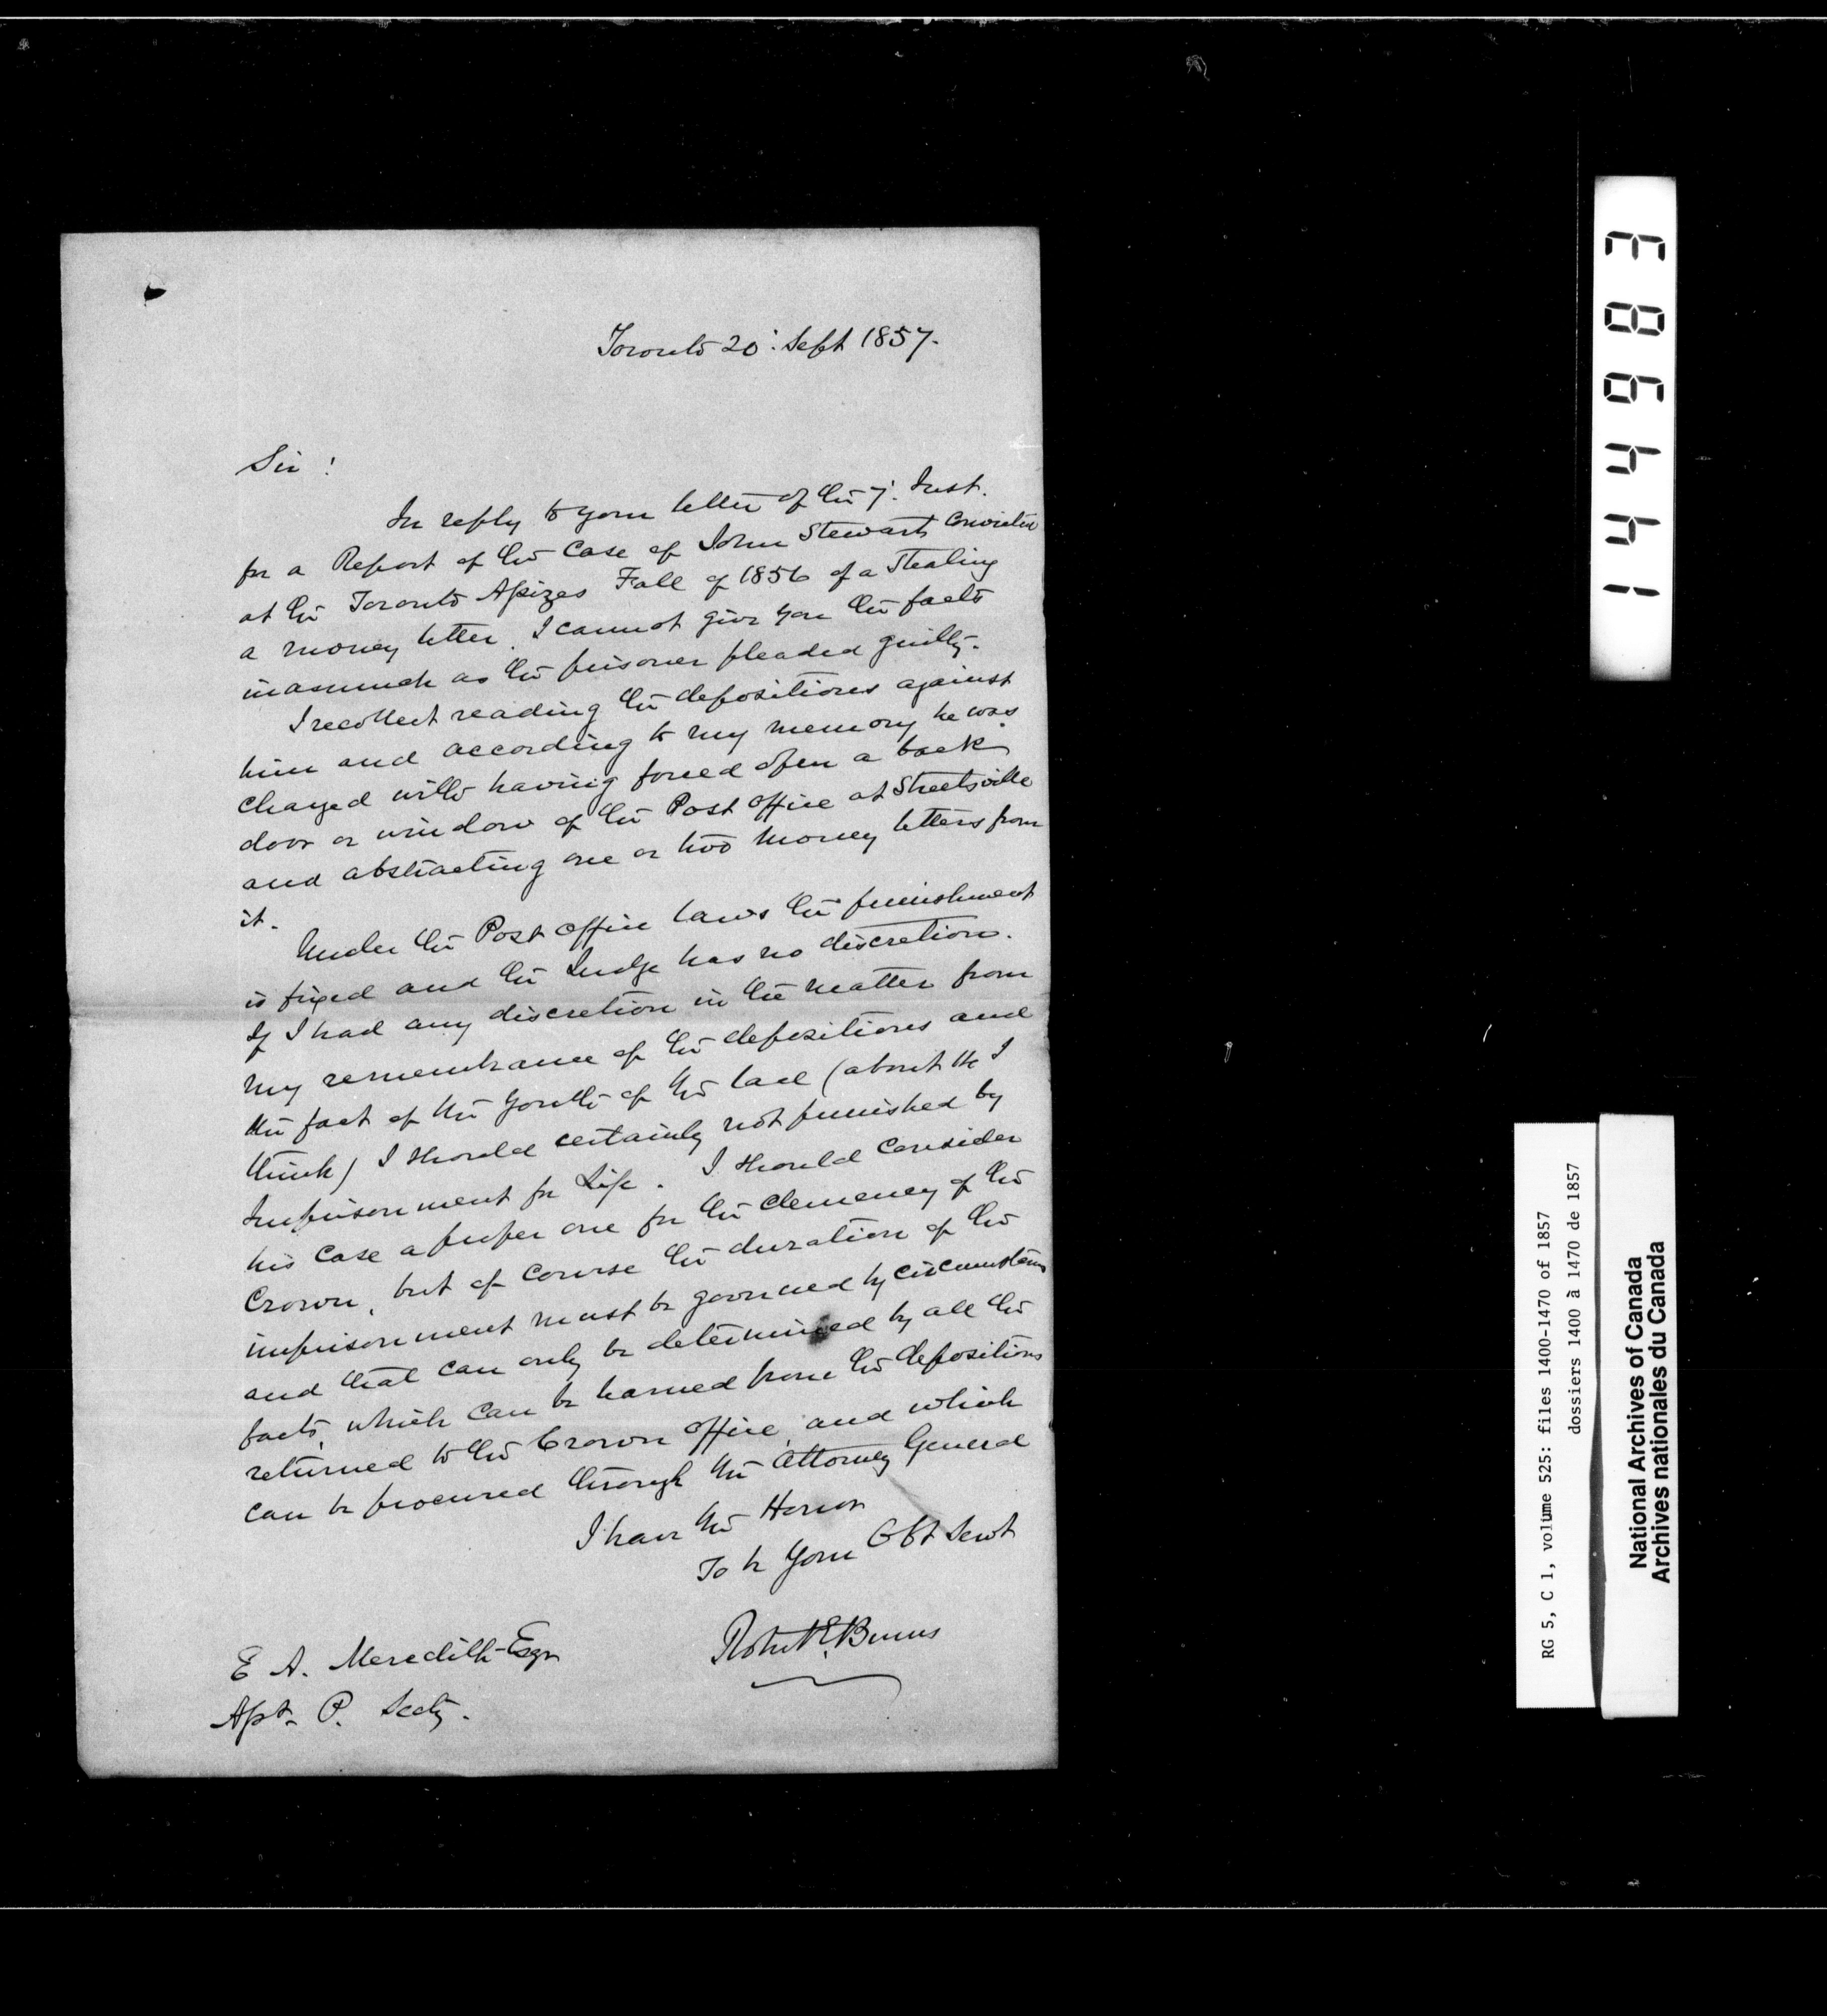 Toronto 20: Sept 1857.
Sir !
In reply to your letter of the 7. Inst.
for a Report of the Case of John Stewart Convicted
at the Toronto Assizes Fall of 1856 of a Stealing
a money letter. I cannot give you the facts
inasmuch as the prisoner pleaded guilty.
I recollect reading the depositions against
him and according to my memory he was
charged with having forced open a back
door or window of the Post office at Streetsville
and abstracting one or two money letters from
it.
Under the Post office laws the punishment
is fixed and the Judge has no discretion.
If I had any discretion in the matter from
my remembrance of the depositions and
the fact of the youth of the lad (about 16 I
think) I should certainly not punished by
Imprisonment for Life. I should consider
his case a proper one for the clemency of the
Crown, but of course the duration of the
imprisonment must be governed by circumstances
and that can only be determined by all the
facts, which can be learned from the depositions
returned to the Crown office, and which
can be procured through the Attorney General
I have the Honor
To be Your Obt Servt
Robert E. Burns
E A. Meredith Esqr
Asst. P. Secty.
144683
RG 5, C 1, volume 525: files 1400-1470 of 1857
dossiers 1400 à 1470 de 1857
National Archives of Canada
Archives nationales du Canada